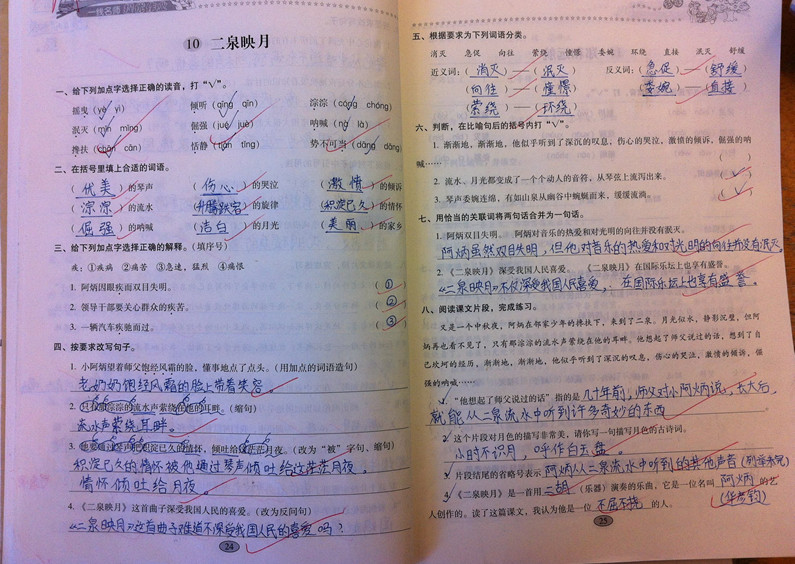 一线名师
10 二泉映月
一、给下列加点字选择正确的读音，打“√”。
摇曳（yè yì） 倾听（qīng qīn） 淙淙（cóng chóng）
泯灭（mǐn mǐng） 倔强（jué juè） 呐喊（nà là）
搀扶（chān cān） 恬静（tián tīng） 势不可当（dāng dǎng）
二、在括号里填上合适的词语。
（优美）的琴声 （伤心）的哭泣 （激愤）的倾诉
（淙淙）的流水 （升腾跌宕）的旋律 （积淀已久）的情怀
（倔强）的呐喊 （洁白）的月光 （美丽）的家乡
三、给下列加点字选择正确的解释。（填序号）
疾：①疾病 ②痛苦 ③急速，猛烈 ④痛恨
1. 阿炳因眼疾而双目失明。 （①）
2. 领导干部要关心群众的疾苦。 （②）
3. 一辆汽车疾驰而过。 （③）
四、按要求改写句子。
1. 小阿炳望着师父饱经风霜的脸，懂事地点了点头。（用加点的词语造句）
老奶奶饱经风霜的脸上带着笑容。
2. 只有那淙淙的流水声萦绕在他的耳畔。（缩句）
流水声萦绕耳畔。
3. 他要通过琴声把积淀已久的情怀，倾吐给这茫茫月夜。（改为“被”字句、缩句）
积淀已久的情怀被他通过琴声倾吐给这茫茫月夜。
情怀倾吐给月夜。
4.《二泉映月》这首曲子深受我国人民的喜爱。（改为反问句）
《二泉映月》这首曲子难道不深受我国人民的喜爱吗？
24
五、根据要求为下列词语分类。
消灭 急促 向往 萦绕 憧憬 委婉 环绕 直接 泯灭 舒缓
近义词：（消灭）——（泯灭） 反义词：（急促）——（舒缓）
（向往）——（憧憬） （委婉）——（直接）
（萦绕）——（环绕）
六、判断，在比喻句后的括号内打“√”。
1. 渐渐地，渐渐地，他似乎听到了深沉的叹息，伤心的哭泣，激愤的倾诉，倔强的呐
喊…… （ ）
2. 流水、月光都变成了一个个动人的音符，从琴弦上流泻出来。 （√）
3. 琴声委婉连绵，有如山泉从幽谷中蜿蜒而来，缓缓流淌。 （√）
七、用恰当的关联词将两句话合并为一句话。
1. 阿炳双目失明。 阿炳对音乐的热爱和对光明的向往并没有泯灭。
阿炳虽然双目失明，但他对音乐的热爱和对光明的向往并没有泯灭。
2.《二泉映月》深受我国人民喜爱。 《二泉映月》在国际乐坛上也享有盛誉。
《二泉映月》不仅深受我国人民喜爱，在国际乐坛上也享有盛誉。
八、阅读课文片段，完成练习。
又是一个中秋夜，阿炳在邻家少年的搀扶下，来到了二泉。月光似水，静影沉璧，但阿
炳再也看不见了，只有那淙淙的流水声萦绕在他的耳畔。他想起了师父说过的话，想到了自
己坎坷的经历，渐渐地，渐渐地，他似乎听到了深沉的叹息，伤心的哭泣，激愤的倾诉，倔
强的呐喊……
1.“他想起了师父说过的话”指的是 几十年前，师父对小阿炳说，长大后
就能从二泉流水中听到许多奇妙的东西
2. 这个片段对月色的描写非常美，请你写一句描写月色的古诗词。
小时不识月，呼作白玉盘。
3. 片段结尾的省略号表示 阿炳从二泉流水中听到的其他声音（列举未完）
4.《二泉映月》是一首用 二胡 （乐器）演奏的乐曲。它是一位名叫 阿炳 的艺
（华彦钧）
人创作的。读了这篇课文，我认为他是一位 不屈不挠 的人。
25